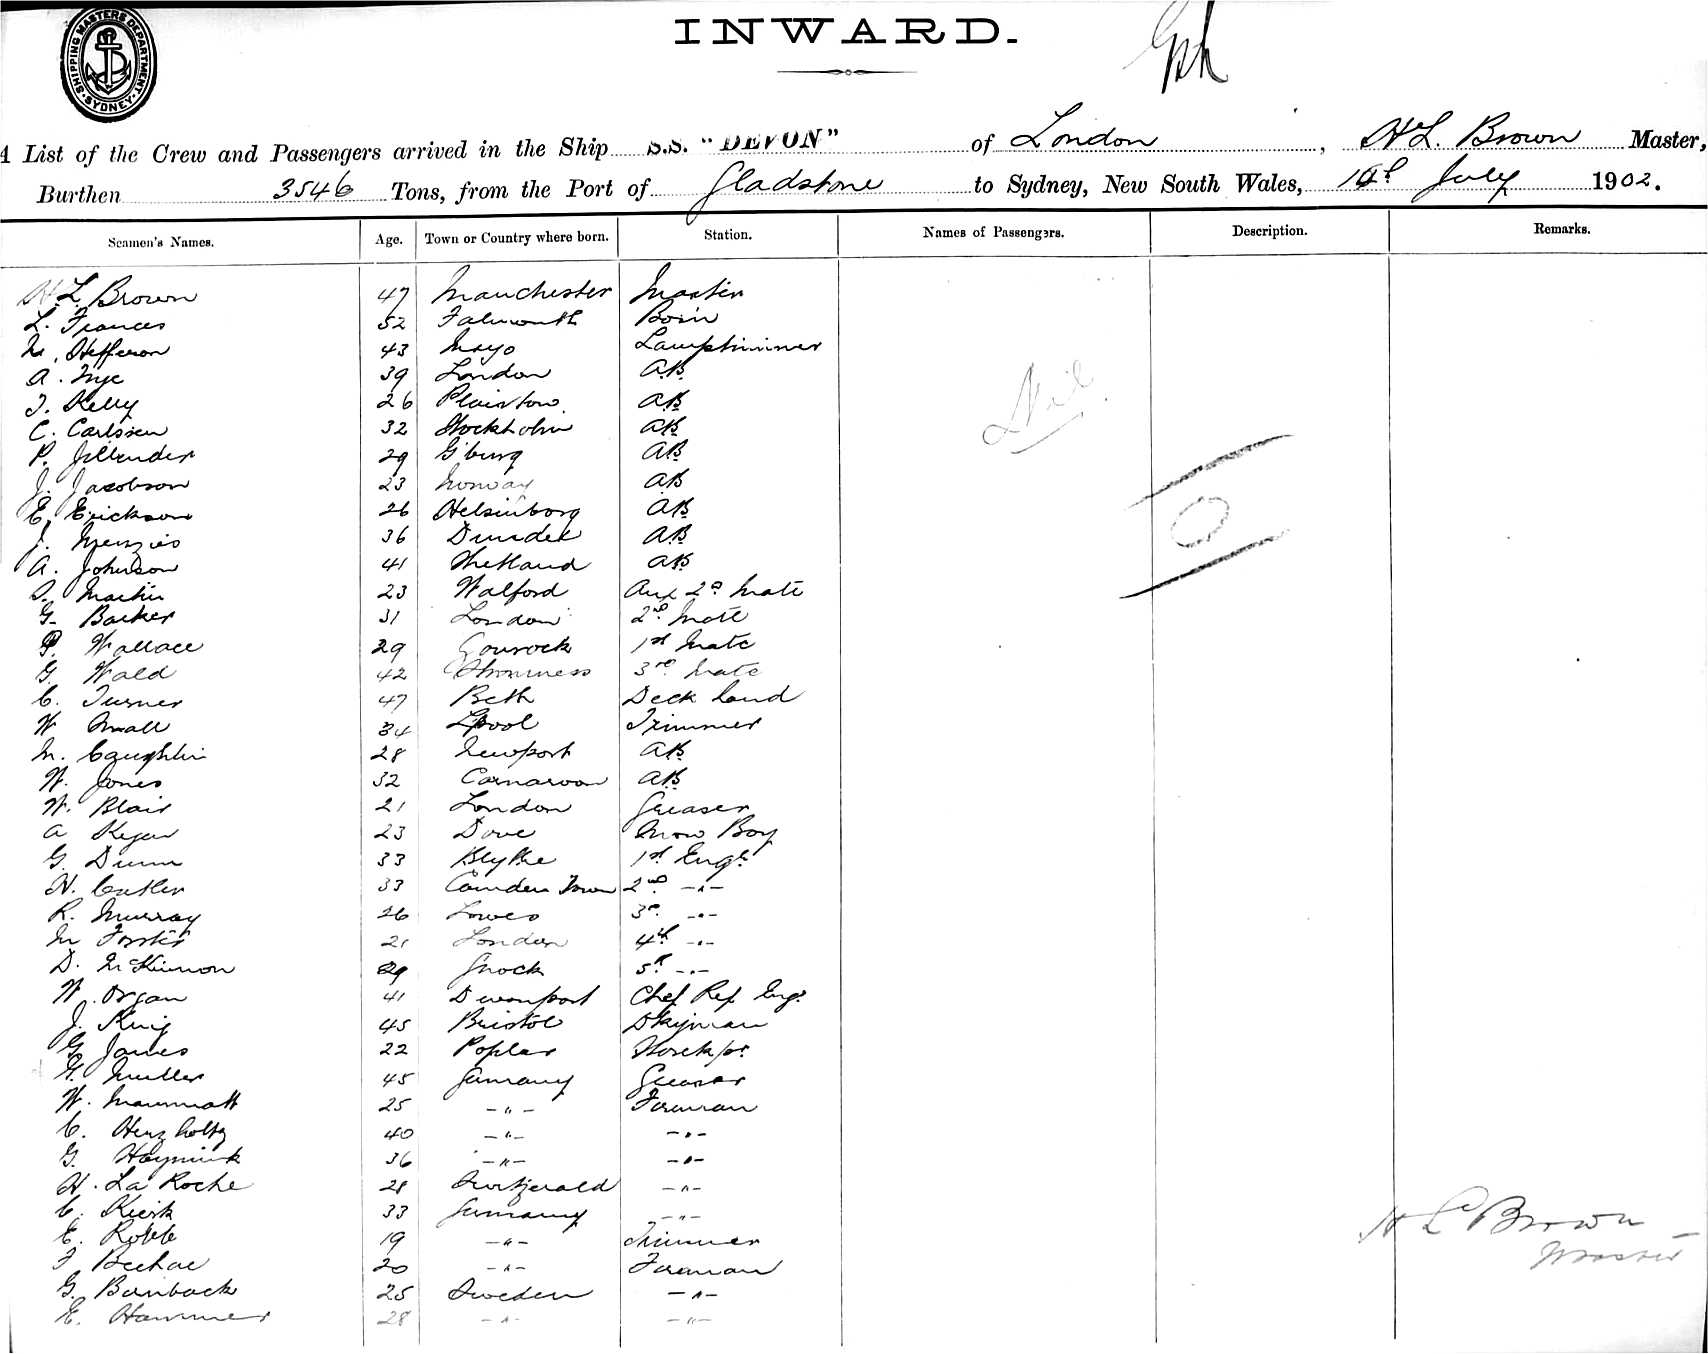 SHIPPING MASTERS DEPARTMENT
SYDNEY
INWARD.
A List of the Crew and Passengers arrived in the Ship S.S. "DEVON" of London, H L Brown Master,
Burthen 3546 Tons, from the Port of Gladstone to Sydney, New South Wales, July 1902.
Seamen's Names. Age. Town or Country where born. Station. Names of Passengers. Description. Remarks.
H L Brown 47 Manchester Master
L. Frances 52 Falmouth Bosn
M. Hefferon 43 Mayo Lamptrimmer
A. Nye 39 London AB
J. Kelly 26 Plaistow AB
C. Carlssen 32 Stockholm AB
P. Jillender 29 G'burg AB
J. Jacobson 23 Norway AB
E. Erickson 26 Helsinborg AB
J. Menzies 36 Dundee AB
A. Johnson 41 Shetland AB
Martin 23 Walford Aux 2d Mate
G. Barker 31 London 2d Mate
P. Wallace 29 Gourock 1st Mate
G. Wald 42 Stromness 3rd Mate
C. Turner 47 Beth Deck hand
W Small 34 L'pool Trimmer
M. Caughlin 28 Newport AB
W. Jones 32 Carnarvon AB
W. Blair 21 London Greaser
A 23 Dove Boy
G. Dunn 33 Blythe 1st Engr
H. Cutler 33 Camden Town 2nd -"-
R. Murray 26 Lowes 3d -"-
M Forster 21 London 4th -"-
D. McKinnon 29 Gnock 5th -"-
W. Organ 41 Devonport Chef Ref Engr
J. King 45 Bristol Dkyman
G James 22 Poplar Storekpr
G. Muller 45 Germany Greaser
W. Mammatt 25 -"- Fireman
C. Herzholtz 40 -"- -"-
G. 36 -"- -"-
H. La Roche 28 Switzerald -"-
C. Kiesk 33 Germany -"-
E. Robb 19 -"- Trimmer
F 20 -"- Fireman
G. Bernback 25 Sweden -"-
E. Hammer 28 -"- -"-
Nil
0
H L Brown
Master